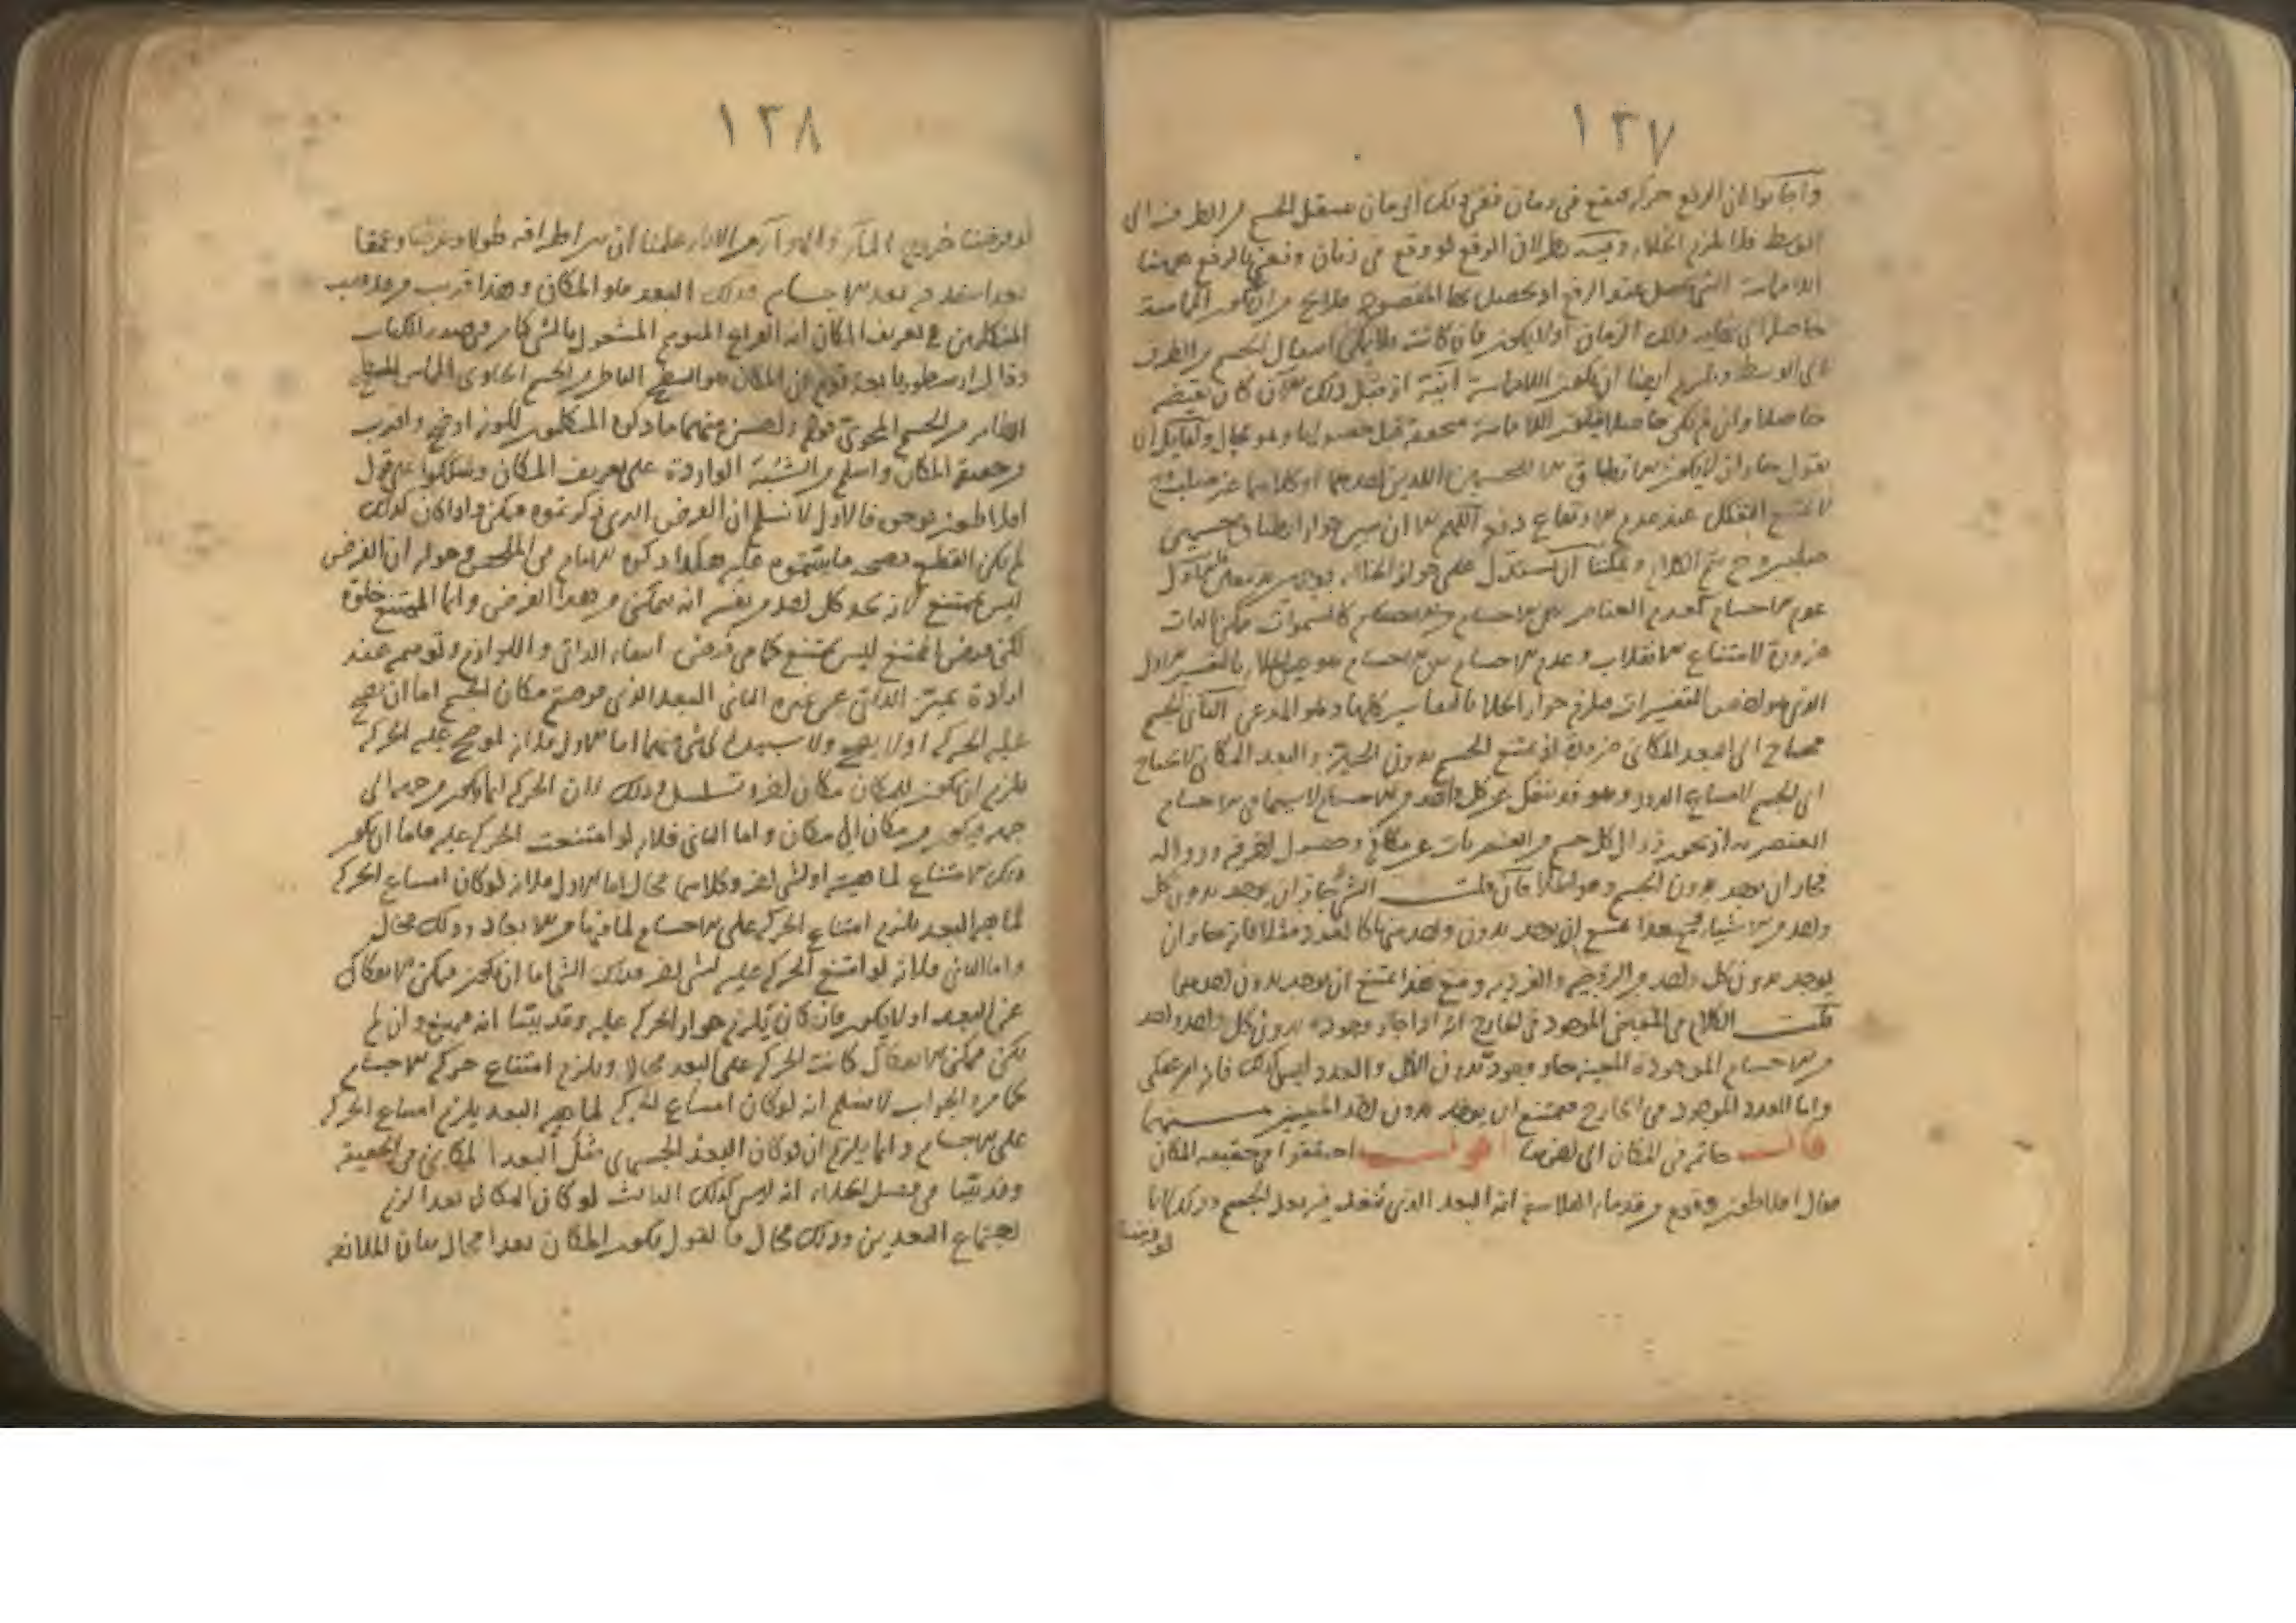 ١٣٧
واجابوا بان الرفع حركة فيقع في زمان ففي ذلك الزمان ينتقل الجسم من الطرف الى
الوسط فلا يلزم الخلاء وفيه نظر لان الرفع لو وقع في زمان ونعني بالرفع ههنا
اللامماسة التي تحصل عند الرفع او يحصل بها المقصود فلا يخ من ان يكون المماسة
حاصلة في ذلك الزمان اولا يكون فان كانت فلا يمكن انتقال الجسم من الطرف
الى الوسط ويلزم ايضا ان يكون اللامماسة آنية اذ قبل ذلك الآن كان نقيضه
حاصلا وان لم يكن حاصلا فيكون اللامماسة متحققة قبل حصولها وهو محال ولقايل ان
يقول جاز ان لا يكون الانطباق من الجسمين اللذين احدهما او كلاهما غير صلب
صلبين وح يتم الكلام ويمكننا ان نستدل على جواز الخلاء بوجهين
عدم الاجسام كعدم العناصر بين الاجسام كالسموات ممكن بالذات
ضرورة لامتناع الانقلاب وعدم الاجسام بين الاجسام هو عين الخلاء بالتفسير الاول
الذي هو اخص التفسيرات فيلزم جواز الخلاء بالتفاسير كلها وهو المدعى الثاني الجسم
محتاج الى البعد المكاني ضرورة اذ يمتنع الجسم بدون الحيز والبعد المكاني لا يحتاج
الى الجسم لامتناع الدور وهو قد ينتقل عن كل واحد من الاجسام لا سيما في الاجسام
العنصرية اذ يجوز زوال كل جسم من العنصريات عن مكانه وحصول اخر فيه وزواله
فجاز ان يوجد بدون الجسم وهو الخلاء فان قلت الشيء جاز ان يوجد بدون كل
واحد من الاشياء ومع هذا يمتنع ان يوجد بدون واحد منها كالعدد مثلا فانه جاز ان
يوجد بدون كل واحد من الزوجية والفردية ومع هذا يمتنع ان يوجد بدون احديهما
قلت الكلام في المعين الموجود في الخارج انه اذا جاز وجوده بدون كل واحد واحد
من الاجسام الموجودة المعينة جاز وجوده بدون الكل والعدد ليس كذلك فانه امر عقلي
واما العدد الموجود في الخارج فيمتنع ان يوجد بدون احد المعينين منهما
قال خاتمة في المكان الى اخرها اقول اختلفوا في حقيقة المكان
فقال افلاطون وقوم من قدماء الفلاسفة انه البعد الذي ينفذ فيه بعد الجسم وذلك لانا
لو فرضنا
١٣٨
لو فرضنا خروج الماء والهواء من الاناء علمنا ان بين اطرافه طولا وعرضا وعمقا
بعدا ينفذ فيه بعد الاجسام وذلك البعد هو المكان وهذا قريب من مذهب
المتكلمين في تعريف المكان انه الفراغ المتوهم المشغول بالشيء كما مر في صدر الكتاب
وقال ارسطو وتابعه قوم ان المكان هو السطح الباطن من الجسم الحاوي المماس للسطح
الظاهر من الجسم المحوي فهو واحسن منهما ما ذكره المتكلمون لكونه اوضح واقرب
من حقيقة المكان واسلم من الشبه الواردة على تعريف المكان وشككوا على قول
افلاطون بوجوه فالاول لا نسلم ان الفرض الذي ذكرتموه ممكن واذا كان كذلك
لم يكن القطع بصحة ما يبتنى عليه هكذا ذكره الامام في الملخص وجوابه ان الفرض
ليس بممتنع لانه يجد كل احد من نفسه انه يتمكن من هذا الفرض وانما الممتنع خلوه
لكن فرض الممتنع ليس بممتنع كما في فرض انتفاء الذاتي واللوازم وتوهمه عند
ارادة تميز الذاتي عن غيره الثاني البعد الذي فرضتم مكان الجسم اما ان يصح
عليه الحركة او لا يصح ولا سبيل الى شيء منهما اما الاول فلانه لو صح عليه الحركة
يلزم ان يكون للمكان مكان اخر وتسلسل وذلك لان الحركة انما يكون من جهة الى
جهة ويكون من مكان الى مكان واما الثاني فلانه لو امتنعت الحركة عليه فاما ان يكون
ذلك الامتناع لماهيته او لشيء اخر وكلاهما محال اما الاول فلانه لو كان امتناع الحركة
لماهية البعد يلزم امتناع الحركة على الاجسام لما فيها من الابعاد وذلك محال
واما الثاني فلانه لو امتنع الحركة عليه لشيء اخر فذلك الشيء اما ان يكون ممكن الانفكاك
عن البعد او لا يكون فان كان يلزم جواز الحركة عليه وقد بينا انه ممتنع وان لم
يكن ممكن الانفكاك كانت الحركة على البعد محالا ويلزم امتناع حركة الاجسام
كما مر والجواب لا نسلم انه لو كان امتناع الحركة لماهية البعد يلزم امتناع الحركة
على الاجسام وانما يلزم ان لو كان البعد الجسمي مثل البعد المكاني في الحقيقة
وقد بينا في فصل الخلاء انه ليس كذلك الثالث لو كان المكان بعدا لزم
اجتماع البعدين وذلك محال فالقول بكون المكان بعدا محال بيان الملازمة